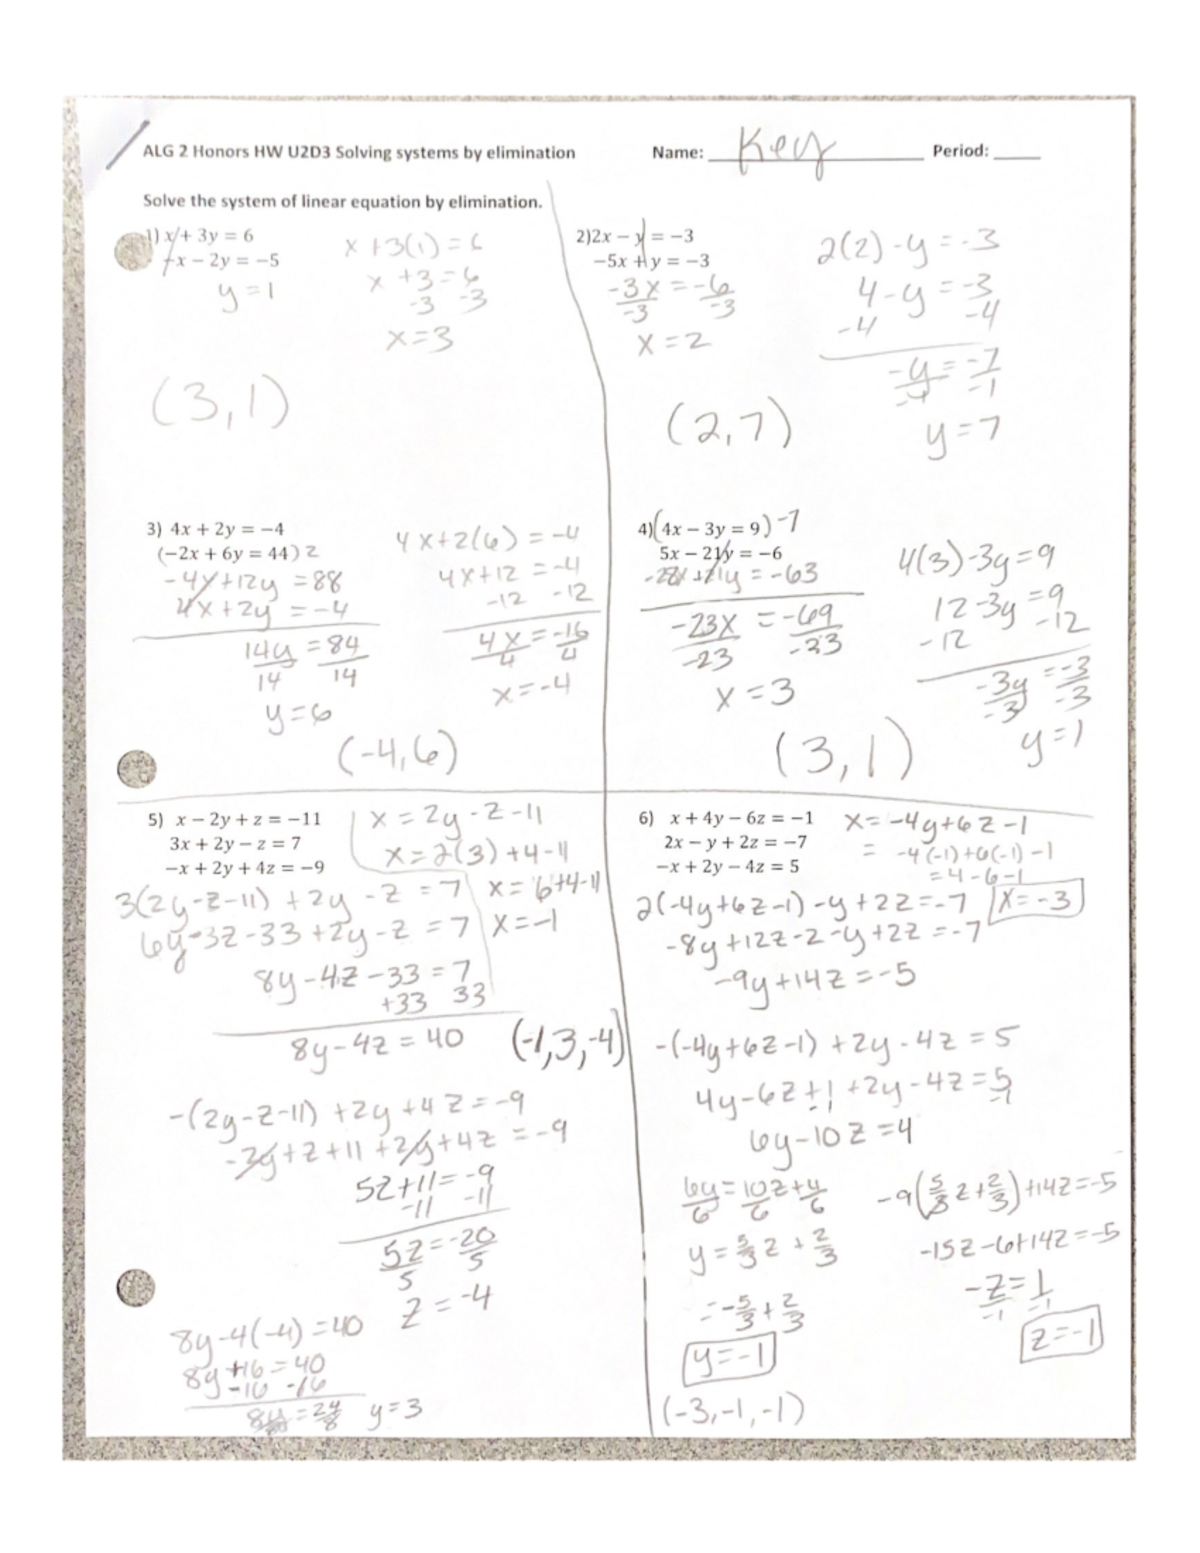 ALG 2 Honors HW U2D3 Solving systems by elimination Name: Key Period:
Solve the system of linear equation by elimination.
1) x + 3y = 6
-x − 2y = −5
y = 1
x + 3(1) = 6
x + 3 = 6
-3 -3
x = 3
(3, 1)
2)2x − y = −3
−5x + y = −3
-3x = -6
-3 -3
x = 2
2(2) - y = -3
4 - y = -3
-4 -4
-y = -7
-1 -1
y = 7
(2, 7)
3) 4x + 2y = −4
(−2x + 6y = 44) 2
-4x + 12y = 88
4x + 2y = -4
14y = 84
14 14
y = 6
4x + 2(6) = -4
4x + 12 = -4
-12 -12
4x = -16
4 4
x = -4
(-4, 6)
4) (4x − 3y = 9) -7
5x − 21y = −6
-28x + 21y = -63
-23x = -69
-23 -33
x = 3
4(3) - 3y = 9
12 - 3y = 9
-12 -12
-3y = -3
-3 -3
y = 1
(3, 1)
5) x − 2y + z = −11
3x + 2y − z = 7
−x + 2y + 4z = −9
x = 2y - z - 11
x = 2(3) + 4 - 11
x = 6 + 4 - 11
x = -1
3(2y - z - 11) + 2y - z = 7
6y - 3z - 33 + 2y - z = 7
8y - 4z - 33 = 7
+33 33
8y - 4z = 40
(-1, 3, -4)
-(2y - z - 11) + 2y + 4z = -9
-2y + z + 11 + 2y + 4z = -9
5z + 11 = -9
-11 -11
5z = -20
5 5
z = -4
8y - 4(-4) = 40
8y + 16 = 40
-16 -16
8y = 24
8
y = 3
6) x + 4y − 6z = −1
2x − y + 2z = −7
−x + 2y − 4z = 5
x = -4y + 6z - 1
= -4(-1) + 6(-1) - 1
= 4 - 6 - 1
x = -3
2(-4y + 6z - 1) - y + 2z = -7
-8y + 12z - 2 - y + 2z = -7
-9y + 14z = -5
-(-4y + 6z - 1) + 2y - 4z = 5
4y - 6z + 1 + 2y - 4z = 5
-1 -1
6y - 10z = 4
6y = 10z + 4
6 6 6
y = 5/3 z + 2/3
= -5/3 + 2/3
y = -1
-9(5/3 z + 2/3) + 14z = -5
-15z - 6 + 14z = -5
-z = 1
-1 -1
z = -1
(-3, -1, -1)